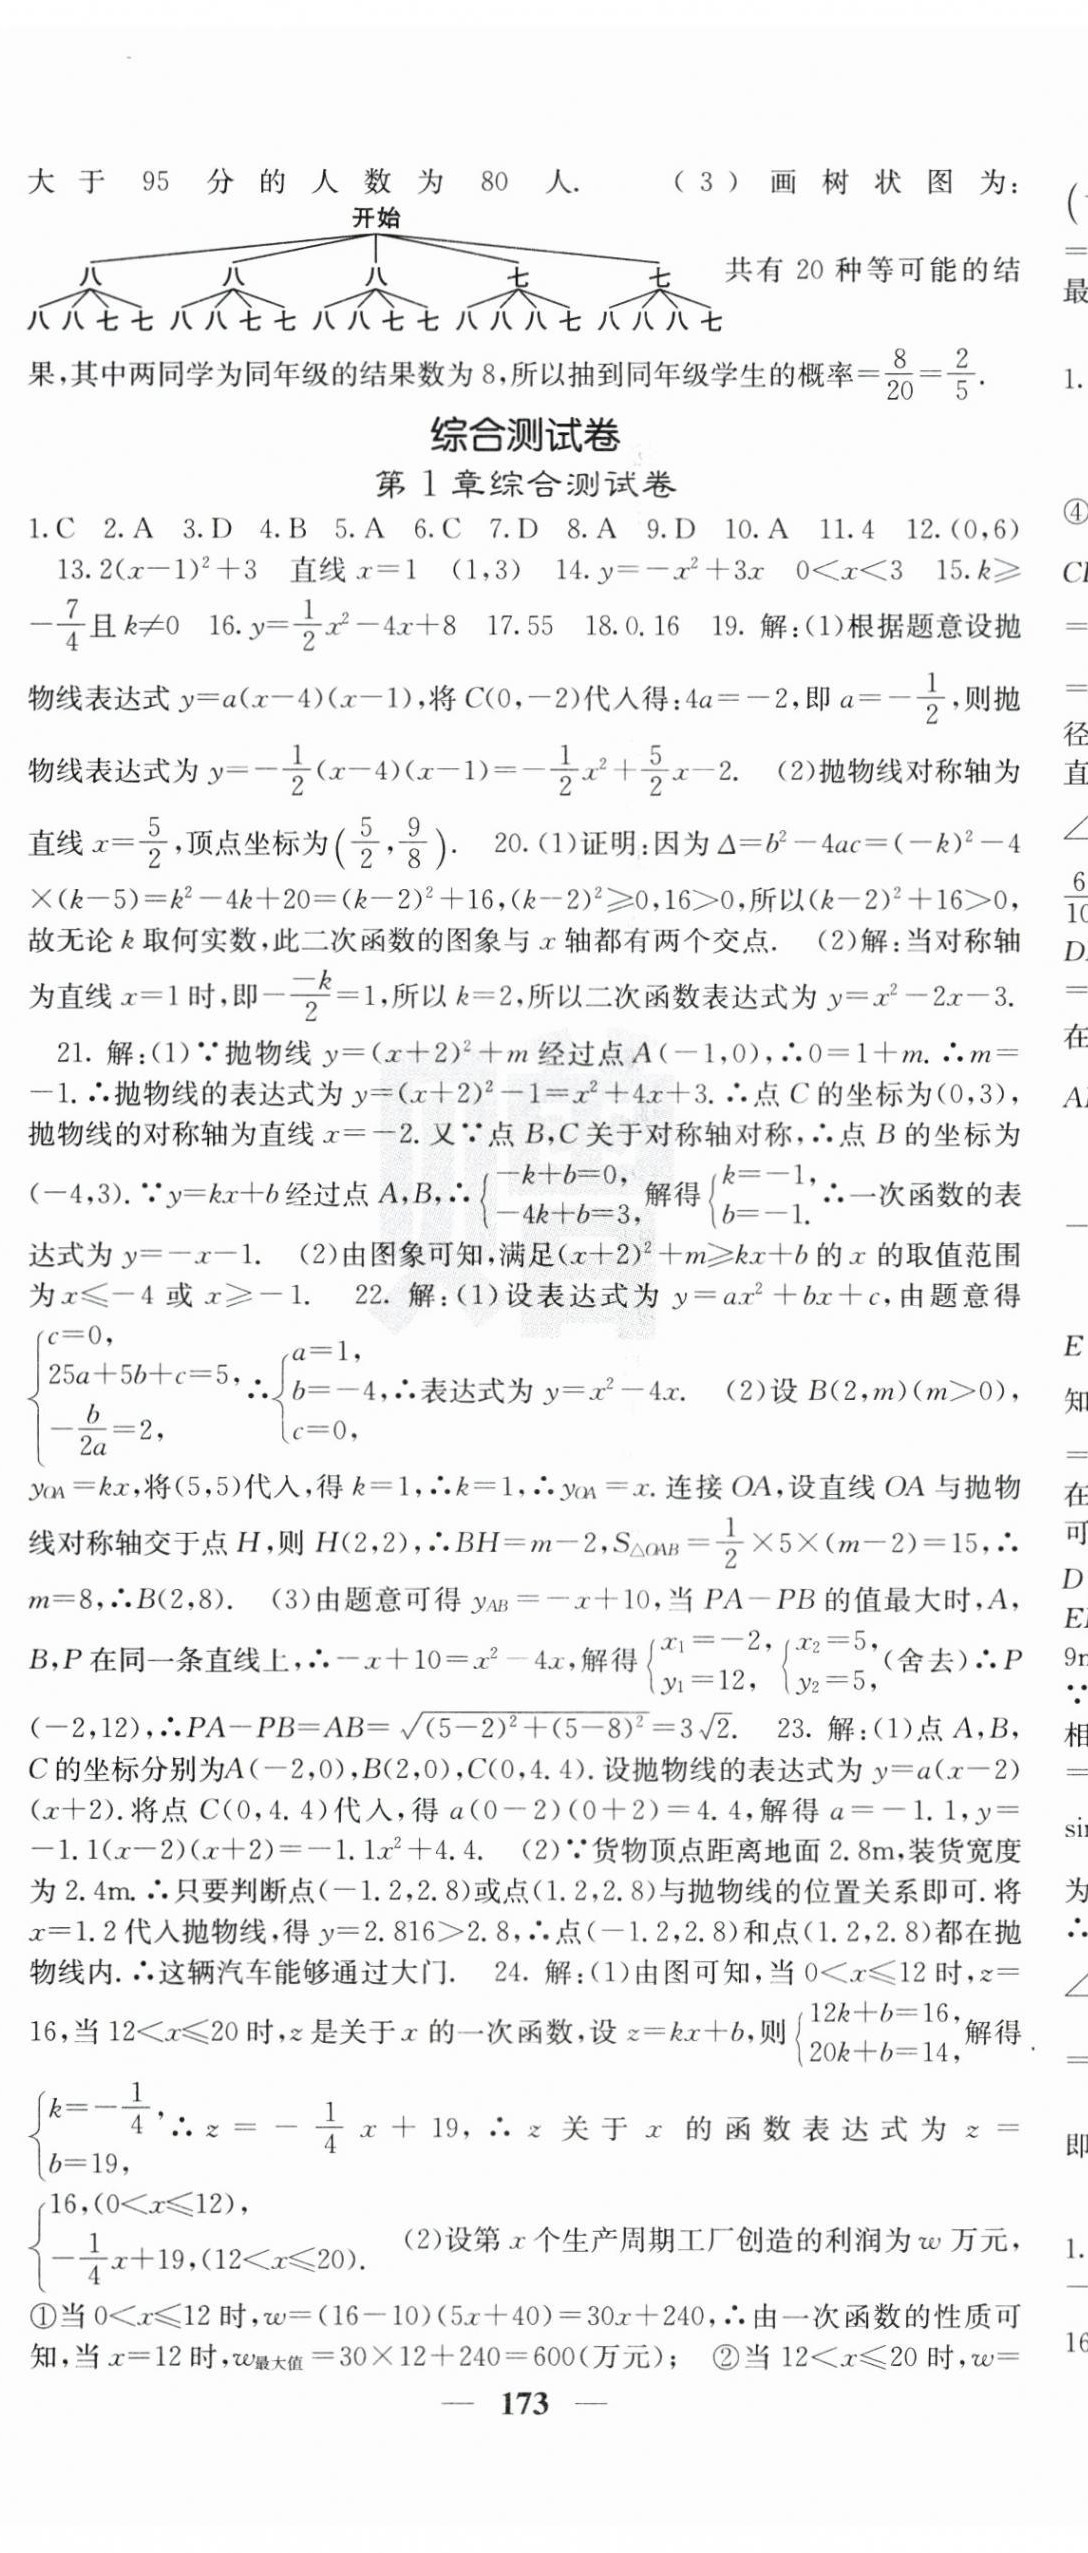 大于 95 分的人数为 80 人. (3)画树状图为:
开始
八 八 八 七 七 共有 20 种等可能的结
八 八 七 七 八 八 七 七 八 八 七 七 八 八 八 七 八 八 八 七
果,其中两同学为同年级的结果数为 8,所以抽到同年级学生的概率=8/20=2/5.
综合测试卷
第 1 章综合测试卷
1.C 2.A 3.D 4.B 5.A 6.C 7.D 8.A 9.D 10.A 11.4 12.(0,6)
13.2(x−1)²+3 直线 x=1 (1,3) 14.y=−x²+3x 0<x<3 15.k⩾
−7/4且 k≠0 16.y=1/2x²−4x+8 17.55 18.0.16 19. 解:(1)根据题意设抛
物线表达式 y=a(x−4)(x−1),将 C(0,−2)代入得:4a=−2,即 a=−1/2,则抛
物线表达式为 y=−1/2(x−4)(x−1)=−1/2x²+5/2x−2. (2)抛物线对称轴为
直线 x=5/2,顶点坐标为(5/2,9/8). 20.(1)证明:因为 Δ=b²−4ac=(−k)²−4
×(k−5)=k²−4k+20=(k−2)²+16,(k−2)²⩾0,16>0,所以(k−2)²+16>0,
故无论 k 取何实数,此二次函数的图象与 x 轴都有两个交点. (2)解:当对称轴
为直线 x=1 时,即−−k/2=1,所以 k=2,所以二次函数表达式为 y=x²−2x−3.
21. 解:(1)∵抛物线 y=(x+2)²+m 经过点 A(−1,0),∴0=1+m.∴m=
−1.∴抛物线的表达式为 y=(x+2)²−1=x²+4x+3.∴点 C 的坐标为(0,3),
抛物线的对称轴为直线 x=−2.又∵点 B,C 关于对称轴对称,∴点 B 的坐标为
(−4,3).∵y=kx+b 经过点 A,B,∴{−k+b=0, −4k+b=3, 解得{k=−1, b=−1. ∴一次函数的表
达式为 y=−x−1. (2)由图象可知,满足(x+2)²+m⩾kx+b 的 x 的取值范围
为 x⩽−4 或 x⩾−1. 22. 解:(1)设表达式为 y=ax²+bx+c,由题意得
{c=0, 25a+5b+c=5, −b/2a=2, ∴{a=1, b=−4, c=0, ∴表达式为 y=x²−4x. (2)设 B(2,m)(m>0),
yOA=kx,将(5,5)代入,得 k=1,∴k=1,∴yOA=x.连接 OA,设直线 OA 与抛物
线对称轴交于点 H,则 H(2,2),∴BH=m−2,S△OAB=1/2×5×(m−2)=15,∴
m=8,∴B(2,8). (3)由题意可得 yAB=−x+10,当 PA−PB 的值最大时,A,
B,P 在同一条直线上,∴−x+10=x²−4x,解得{x₁=−2, y₁=12, {x₂=5, y₂=5, (舍去)∴P
(−2,12),∴PA−PB=AB=√(5−2)²+(5−8)²=3√2. 23. 解:(1)点 A,B,
C 的坐标分别为A(−2,0),B(2,0),C(0,4.4).设抛物线的表达式为 y=a(x−2)
(x+2).将点 C(0,4.4)代入,得 a(0−2)(0+2)=4.4,解得 a=−1.1,y=
−1.1(x−2)(x+2)=−1.1x²+4.4. (2)∵货物顶点距离地面 2.8m,装货宽度
为 2.4m.∴只要判断点(−1.2,2.8)或点(1.2,2.8)与抛物线的位置关系即可.将
x=1.2 代入抛物线,得 y=2.816>2.8,∴点(−1.2,2.8)和点(1.2,2.8)都在抛
物线内.∴这辆汽车能够通过大门. 24. 解:(1)由图可知,当 0<x⩽12 时,z=
16,当 12<x⩽20 时,z 是关于 x 的一次函数,设 z=kx+b,则{12k+b=16, 20k+b=14, 解得
{k=−1/4, b=19, ∴z=−1/4x+19,∴z 关于 x 的函数表达式为 z=
{16,(0<x⩽12), −1/4x+19,(12<x⩽20). (2)设第 x 个生产周期工厂创造的利润为 w 万元,
①当 0<x⩽12 时,w=(16−10)(5x+40)=30x+240,∴由一次函数的性质可
知,当 x=12 时,w最大值=30×12+240=600(万元); ②当 12<x⩽20 时,w=
— 173 —